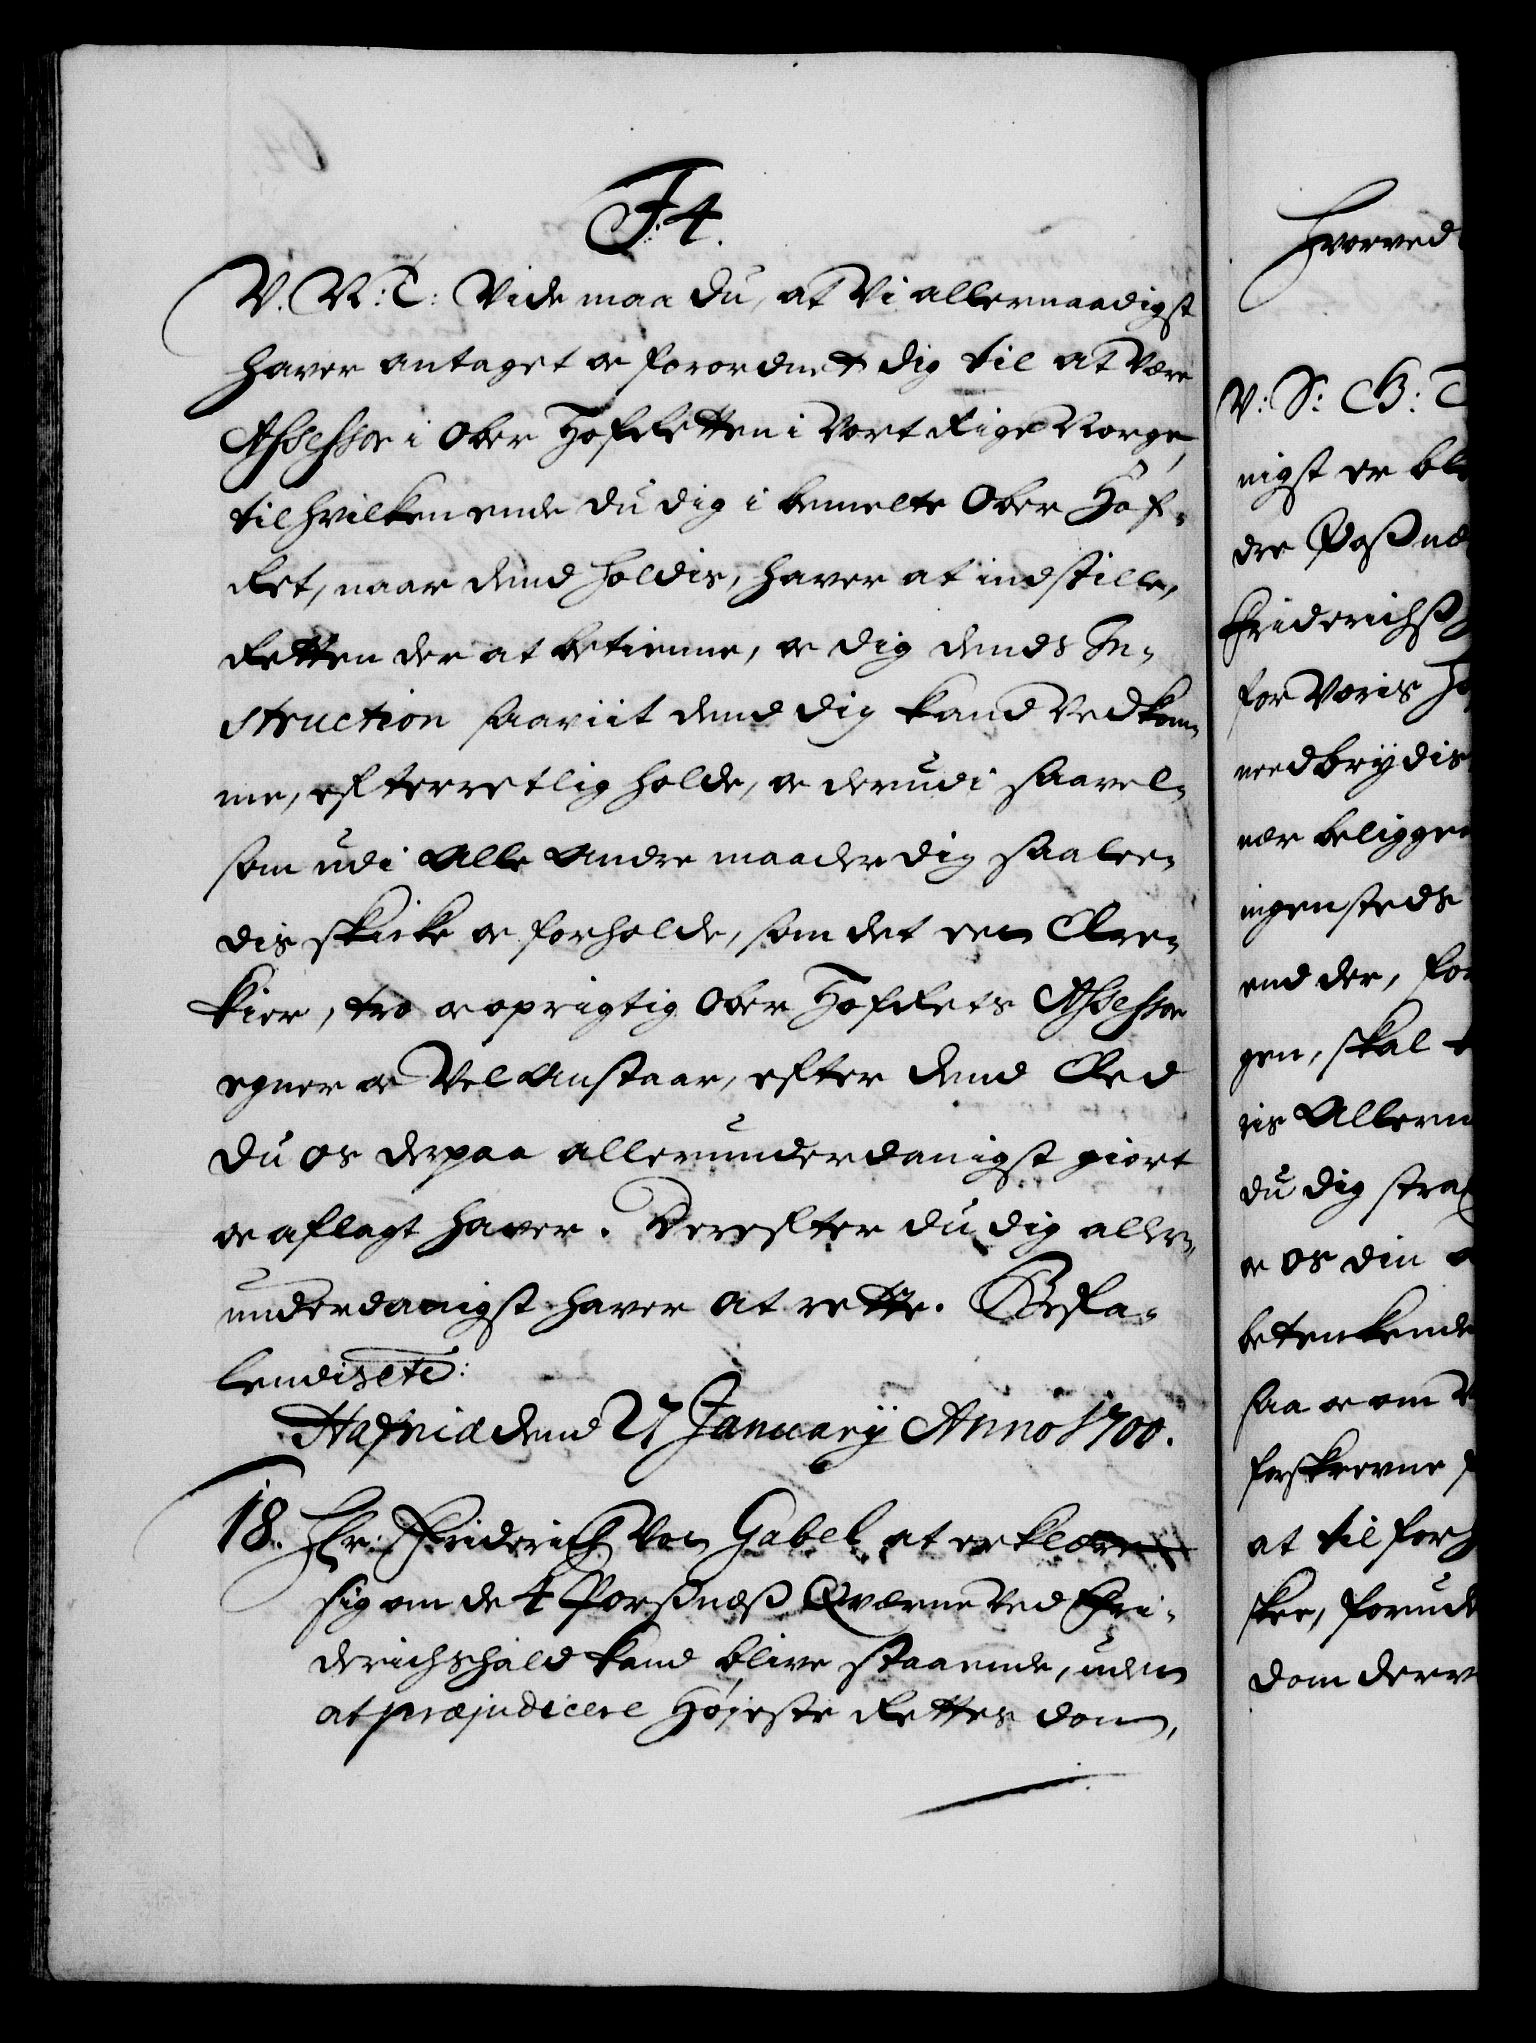 F. 4.
V. N: T: Vide maa du, at Vi allernaadigst
haver antaget oc forordnet dig til at være
Assessor i Ober HofRetten i Vort Rige Norge,
til hvilken ende du dig i bemelte Ober Hof-
Ret, naar dend holdis, haver at indstille,
Retten der at betienne, oc dig dends In-
struction saaviit dend dig kand vedkom-
me, efterretlig holde, oc derudi saavel-
som udi Alle Andre maader dig saalee-
dis skicke oc forholde, som det een Ære-
kier, tro oc oprigtig Ober HofRets Assessor
egner oc Vel Anstaar, efter dend Eed
du os derpaa allerunderdanigst giort
oc aflagt haver. Derefter du dig aller-
underdanigst haver at rette. Befa-
lendis etc:
Hafniæ dend 27 January Anno 1700.
18. Hr. Friderich Von Gabel at erklære
sig om de 4 Porsnæs Qværne ved Fri-
derichshald kand blive staaende, uden
at præjudicere Højeste Rettes dom,
Hvorved
V: S: G: T
nigst er bl
dre Posnæ
Friderichs
for Voris H
needbrydis
nær beligge
ingensteds
end der, for
gen, skal
ris Allern
du dig stra
oc os din
betenkende
saa oc om
forskrevne
at til forh
skee, forud
dom derv